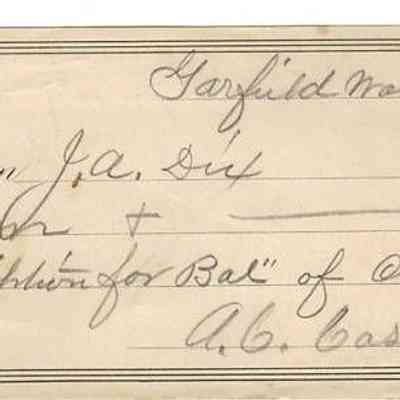 Garfield Wa
" J. A. Dix
+
for Bal" of
A. C. Cas